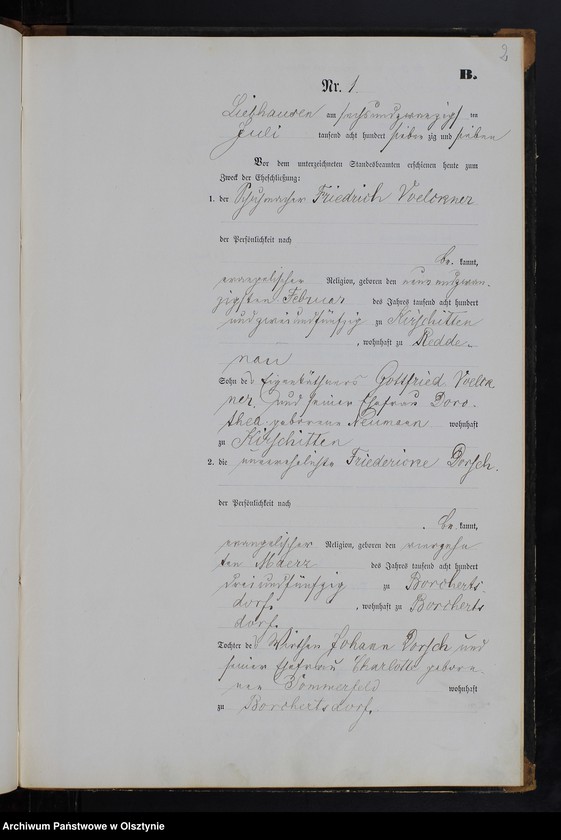 2
B.
Nr. 1
Liebhausen am sechsundzwanzigsten
Juli tausend acht hundert siebenzig und sieben
Vor dem unterzeichneten Standesbeamten erschienen heute zum
Zweck der Eheschließung:
1. der Schuhmacher Friedrich Voelckner
der Persönlichkeit nach
be kannt,
evangelischer Religion, geboren den neunundzwan-
zigsten Februar des Jahres tausend acht hundert
undzweiundfünfzig zu Kirschitten
, wohnhaft zu Redde-
nau
Sohn des Eigenkäthners Gottfried Voelck
ner und seiner Ehefrau Doro-
thea geborene Neumann wohnhaft
zu Kirschitten
2. die unverehelichte Friedericke Dorsch.
der Persönlichkeit nach
be kannt,
evangelischer Religion, geboren den vierzehn
ten Maerz des Jahres tausend acht hundert
dreiundfünfzig zu Borcherts
dorf. , wohnhaft zu Borcherts
dorf.
Tochter des Wirthen Johann Dorsch und
seiner Ehefrau Charlotte gebore-
nen Sommerfeld wohnhaft
zu Borchertsdorf.
Archiwum Państwowe w Olsztynie